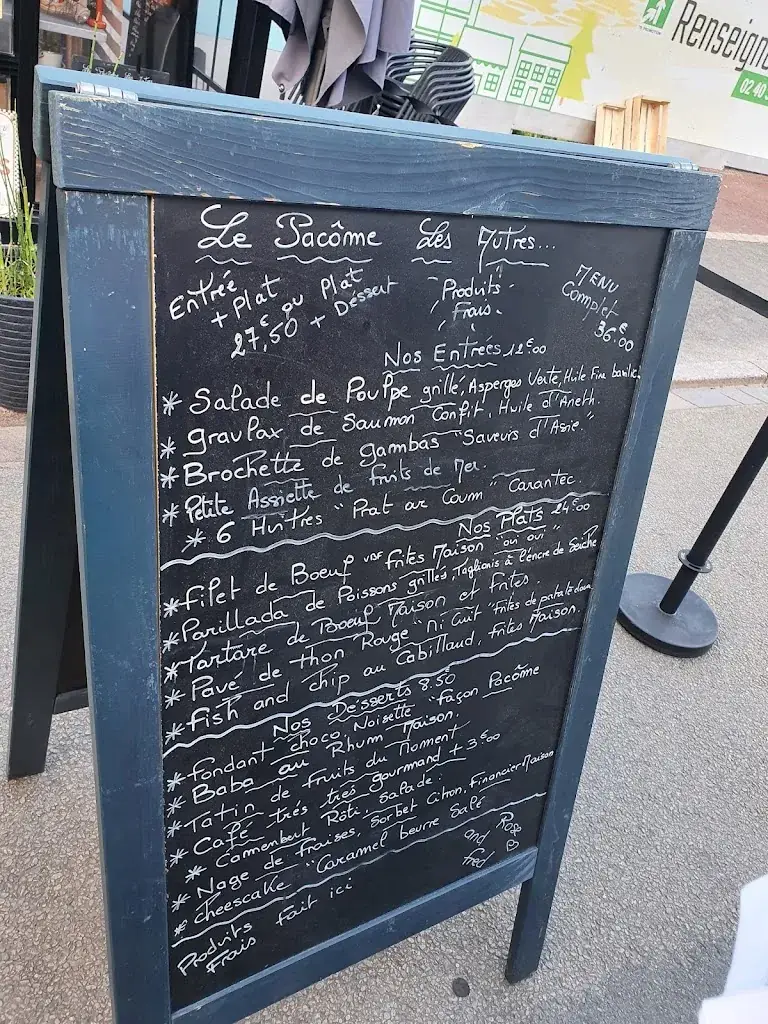 Renseigne
02 40
Le Pacôme Les Autres...
Entrée + Plat
ou Plat + Déssert
27,50€
Produits Frais
MENU Complet 36.€00
Nos Entrées 12€00
* Salade de Poulpe grillé, Asperges Verte, Huile Fine basilic
* gravlax de Saumon Confit, Huile d'Aneth.
* Brochette de gambas "Saveurs d'Asie."
* Petite Assiette de fruits de Mer.
* 6 Huitres "Prat ar Coum" Carantec.
Nos Plats 24€00
* Filet de Boeuf VBF Frites Maison "oui oui"
* Parillada de Poissons grillés, Tagliatis à l'encre de Seiche
* Tartare de Boeuf Maison et frites.
* Pavé de thon Rouge "Mi Cuit" Frites de patate douce
* Fish and chip au Cabillaud, frites Maison.
Nos Desserts 8.50
* Fondant choco, Noisette "façon Pacôme
* Baba au Rhum Maison.
* Tatin de fruits du Moment
* Café très très gourmand + 3€00
* Camenbert Rôti, Salade.
* Nage de fraises, Sorbet Citron, Financier Maison
* Cheescake "Caramel beurre Salé
and Fred
Produits Frais Fait ici